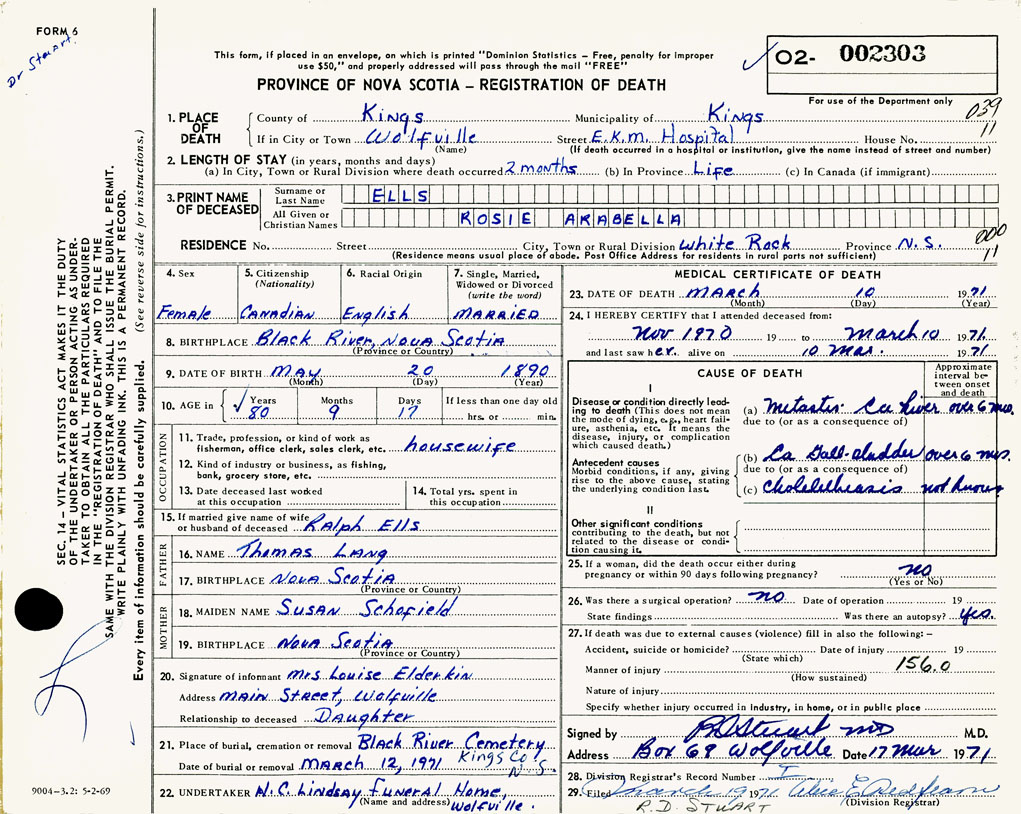 FORM 6
Dr Stuart
This form, if placed in an envelope, on which is printed "Dominion Statistics – Free, penalty for improper
use $50," and properly addressed will pass through the mail "FREE"
PROVINCE OF NOVA SCOTIA – REGISTRATION OF DEATH
O2- 002303
For use of the Department only
039
11
1. PLACE OF DEATH
County of Kings Municipality of Kings
If in City or Town Wolfville Street E.K.M. Hospital House No.
(Name) (If death occurred in a hospital or institution, give the name instead of street and number)
2. LENGTH OF STAY (in years, months and days)
(a) In City, Town or Rural Division where death occurred 2 months (b) In Province Life (c) In Canada (if immigrant)
3. PRINT NAME OF DECEASED
Surname or Last Name ELLS
All Given or Christian Names ROSIE ARABELLA
RESIDENCE No. Street City, Town or Rural Division White Rock Province N.S.
000
11
(Residence means usual place of abode. Post Office Address for residents in rural parts not sufficient)
4. Sex
Female
5. Citizenship
(Nationality)
CANADIAN
6. Racial Origin
English
7. Single, Married,
Widowed or Divorced
(write the word)
MARRIED
8. BIRTHPLACE Black River, Nova Scotia
(Province or Country)
9. DATE OF BIRTH MAY 20 1890
(Month) (Day) (Year)
10. AGE in Years Months Days If less than one day old
80 9 17 hrs. or min.
OCCUPATION
11. Trade, profession, or kind of work as
fisherman, office clerk, sales clerk, etc. housewife
12. Kind of industry or business, as fishing,
bank, grocery store, etc.
13. Date deceased last worked
at this occupation
14. Total yrs. spent in
this occupation
15. If married give name of wife
or husband of deceased Ralph Ells
FATHER
16. NAME Thomas Lang
17. BIRTHPLACE Nova Scotia
(Province or Country)
MOTHER
18. MAIDEN NAME Susan Schofield
19. BIRTHPLACE Nova Scotia
(Province or Country)
20. Signature of informant Mrs Louise Elderkin
Address Main Street, Wolfville
Relationship to deceased Daughter
21. Place of burial, cremation or removal Black River Cemetery
Date of burial or removal MARCH 12, 1971 Kings Co. N.S.
22. UNDERTAKER H.C. Lindsay Funeral Home,
(Name and address) Wolfville.
MEDICAL CERTIFICATE OF DEATH
23. DATE OF DEATH MARCH 10 1971
(Month) (Day) (Year)
24. I HEREBY CERTIFY that I attended deceased from:
Nov 1970 19 to March 10 1971
and last saw her alive on 10 Mar. 1971
CAUSE OF DEATH
Approximate
interval between onset
and death
I
Disease or condition directly leading to death (This does not mean
the mode of dying, e.g., heart failure, asthenia, etc. It means the
disease, injury, or complication
which caused death.)
(a) Metastic Ca liver over 6 mos.
due to (or as a consequence of)
Antecedent causes
Morbid conditions, if any, giving
rise to the above cause, stating
the underlying condition last.
(b) Ca Gall-bladder over 6 mos.
due to (or as a consequence of)
(c) Cholelithiasis not known
II
Other significant conditions
contributing to the death, but not
related to the disease or condition causing it.
25. If a woman, did the death occur either during
pregnancy or within 90 days following pregnancy? no
(Yes or No)
26. Was there a surgical operation? no Date of operation 19
State findings Was there an autopsy? yes.
27. If death was due to external causes (violence) fill in also the following: –
Accident, suicide or homicide? Date of injury 19
(State which)
Manner of injury 156.0
(How sustained)
Nature of injury
Specify whether injury occurred in industry, in home, or in public place
Signed by RD Stuart MD M.D.
Address Box 69 Wolfville Date 17 Mar 1971
28. Division Registrar's Record Number
29. Filed March 19 1971
R.D. STUART (Division Registrar)
SEC. 14 – VITAL STATISTICS ACT MAKES IT THE DUTY
OF THE UNDERTAKER OR PERSON ACTING AS UNDERTAKER TO OBTAIN ALL THE PARTICULARS REQUIRED
IN THE "REGISTRATION OF DEATH" AND TO FILE THE
SAME WITH THE DIVISION REGISTRAR WHO SHALL ISSUE THE BURIAL PERMIT.
WRITE PLAINLY WITH UNFADING INK. THIS IS A PERMANENT RECORD.
Every item of information should be carefully supplied. (See reverse side for instructions.)
9004-3.2: 5-2-69